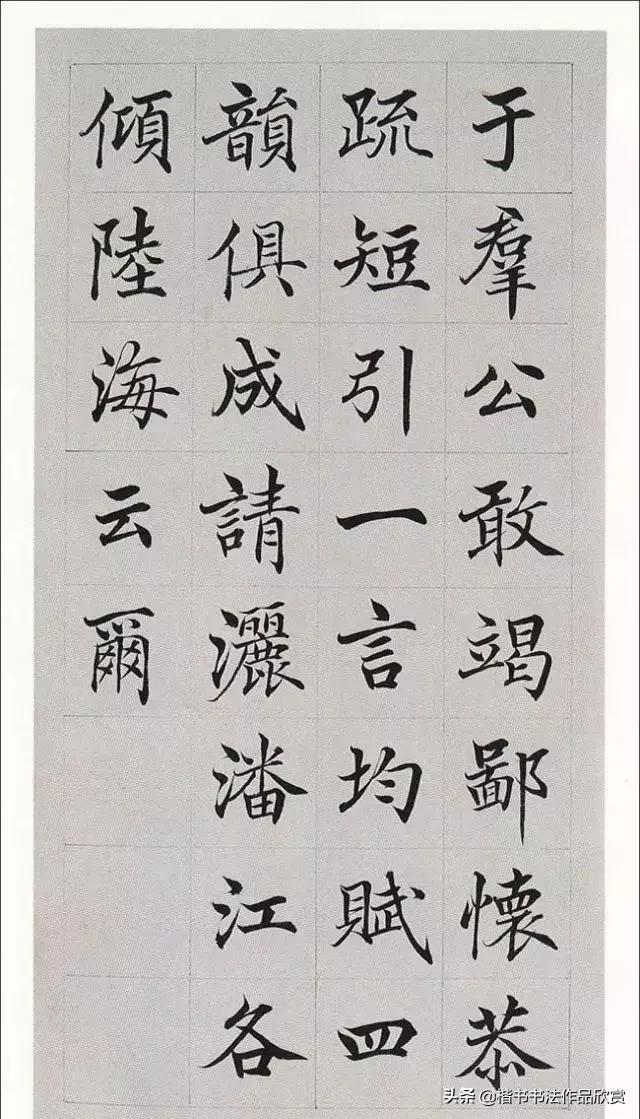 于羣公敢竭鄙懷恭
疏短引一言均賦四
韻俱成請灑潘江各
傾陸海云爾
头条 @楷书书法作品欣赏